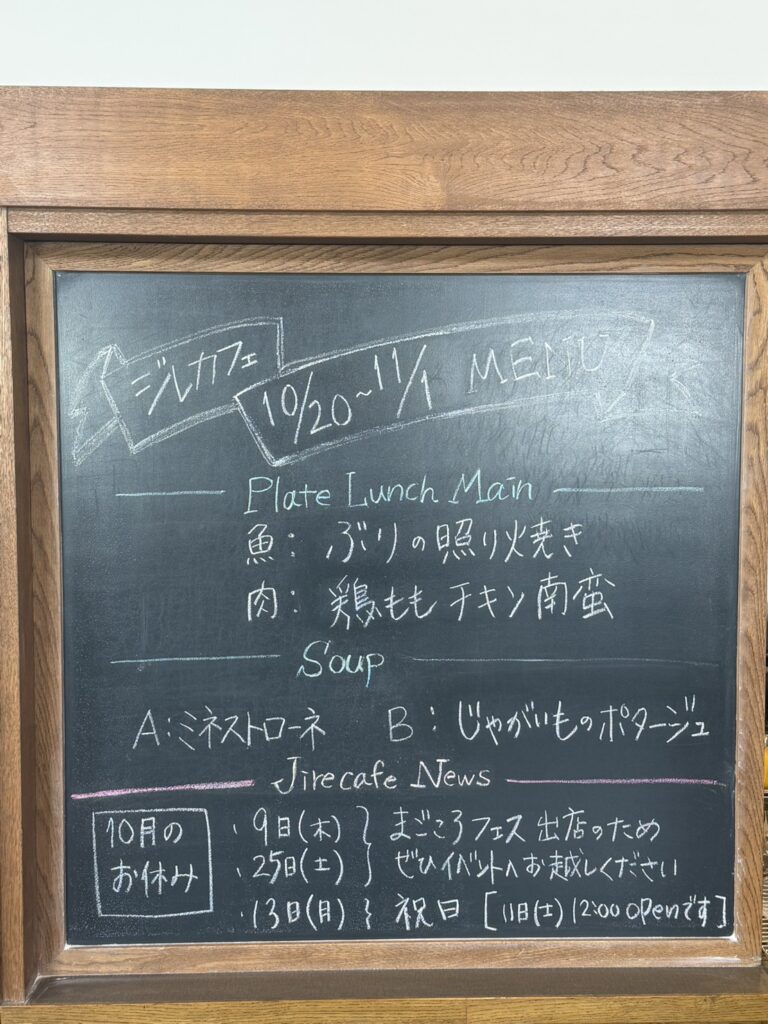 ジルカフェ 10/20~11/1 MENU
Plate Lunch Main
魚: ぶりの照り焼き
肉: 鶏もも チキン南蛮
Soup
A:ミネストローネ B:じゃがいものポタージュ
Jirecafe News
10月のお休み
・9日(木) } まごころフェス 出店のため
・25日(土) } ぜひイベントへお越しください
・13日(月) } 祝日 [11日(土) 12:00 openです]